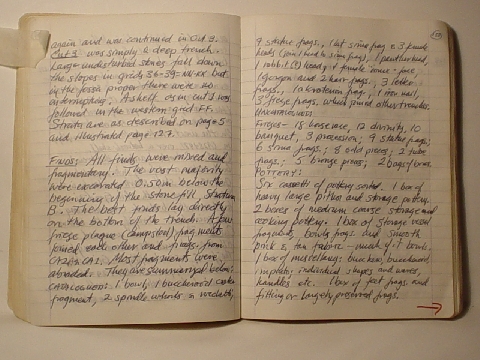 again and was continued in Cut 3.
Cut 3 was simply a deep trench.
Large undisturbed stones fell down
the slopes in grids 36-39 but
in the fossa proper there were no
was
followed in the western grid FF.
Strata are as described on page 5
and illustrated page 127.
FINDS: All finds were mixed and
fragmentary. The vast majority
were excavated 0.50m below the
beginning of the stone fill, Stratum
B. The best finds lay directly
on the bottom of the trench. A few
frieze plaque (Campstool) fragments
joined each other and frags. from
CA2B3CA1. Most fragments were
abraded. They are summarized below:
CATALOGUED: 1 bowl, 1 bucchero
fragment, 2 spindle whorls
9 statue frags., 1 lat. sima frag & 3 female
heads (join 1 head to sima frag), 1 panther head,
1 rabbit (?) head, 1 female face,
1 gorgon and 2 hair frags., 3 letter
frags., 1 akroterion frag., 1 iron nail,
3 frieze frags. which joined other trenches.
UNCATALOGUED:
Friezes - 18 horserace, 12 divinity, 10
banquet, 3 procession; 9 statue frags;
6 sima frags; 8 odd pieces; 2 tube
frags; 5 bronze pieces; 2 bags of bones.
POTTERY:
Six cassetti of pottery sorted. 1 box of
heavy large pithos and storage pottery.
2 boxes of medium coarse storage and
cooking pottery. 1 box of storage vessel
fragments, bowls frags. and smooth
pink & tan fabric - much of it bowls.
1 box of miscellany: bucchero, buccheroid
impasto, individual shapes and wares,
handles etc. 1 box of feet frags. and
fitting or largely preserved frags.